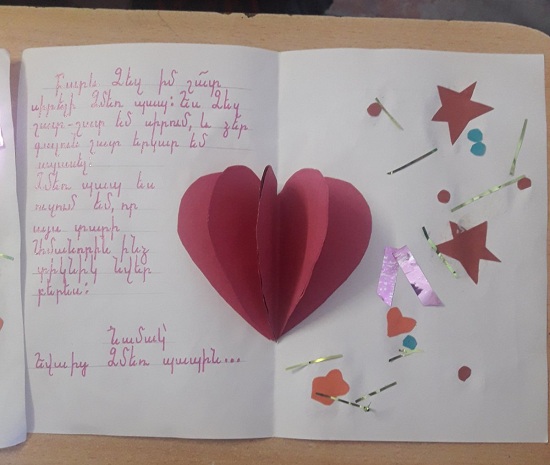 Բարև Ձեզ իմ շա՜տ
սիրելի Ձմեռ պապ: Ես Ձեզ
շատ-շատ եմ սիրում, և ձեր
գալուն շատ երկար եմ
սպասել:
Ձմեռ պապ ես
ուզում եմ, որ
այս տարի
Ամանորին ինձ
տիկնիկ նվեր
բերես:
Նամակ՝
Եվայից Ձմեռ պապին...